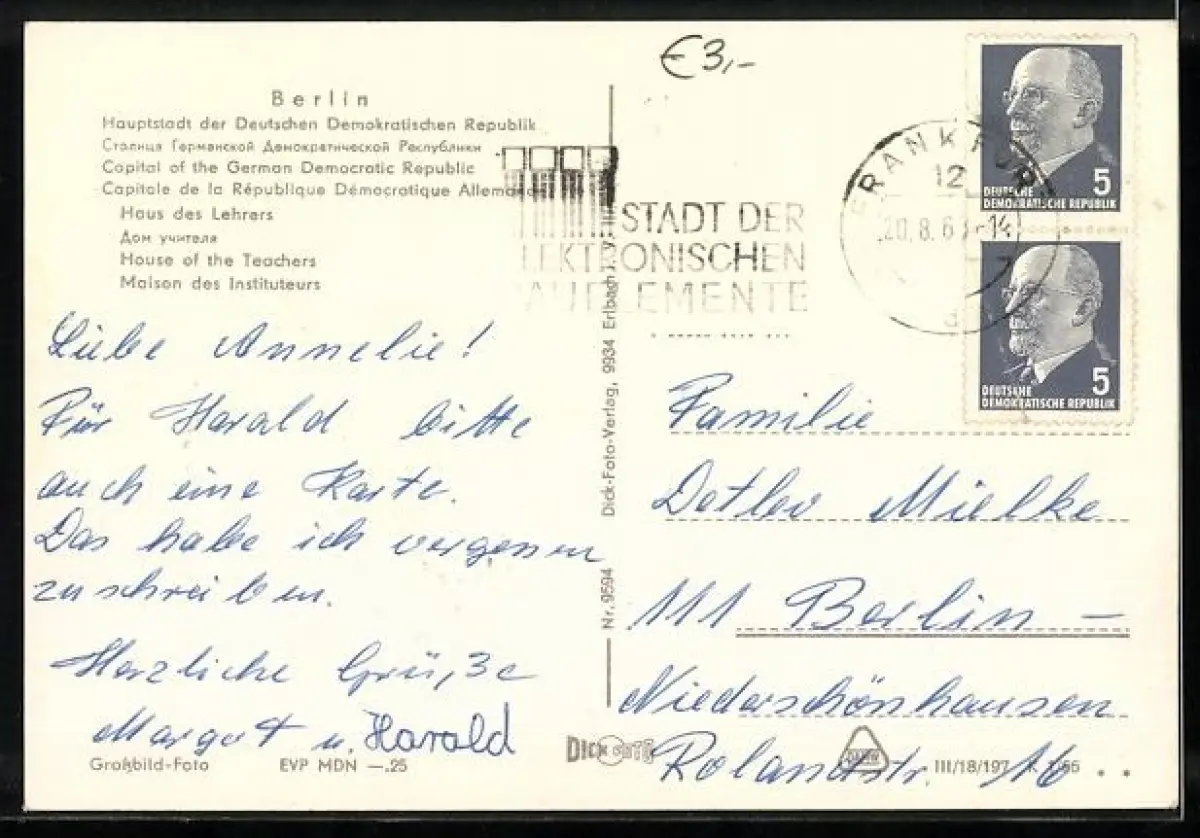 €3,-
Berlin
Hauptstadt der Deutschen Demokratischen Republik
Столица Германской Демократической Республики
Capital of the German Democratic Republic
Capitale de la République Démocratique Allemande
Haus des Lehrers
Дом учителя
House of the Teachers
Maison des Instituteurs
STADT DER
ELEKTRONISCHEN
BAUELEMENTE
FRANKFUR
12
20.8.6 -14
a
5
DEUTSCHE
DEMOKRATISCHE REPUBLIK
5
DEUTSCHE
DEMOKRATISCHE REPUBLIK
Liebe Annelie!
Für Harald bitte
auch eine Karte.
Das habe ich vergessen
zu schreiben.
Herzliche Grüße
Margot u. Harald
Großbild-Foto EVP MDN —.25
Nr. 9594 Dick-Foto-Verlag, 9934 Erlbach
Familie
Detlev Mielke
111 Berlin –
Niederschönhausen
Rolandstr. 16
DICK FOTO
III/18/197